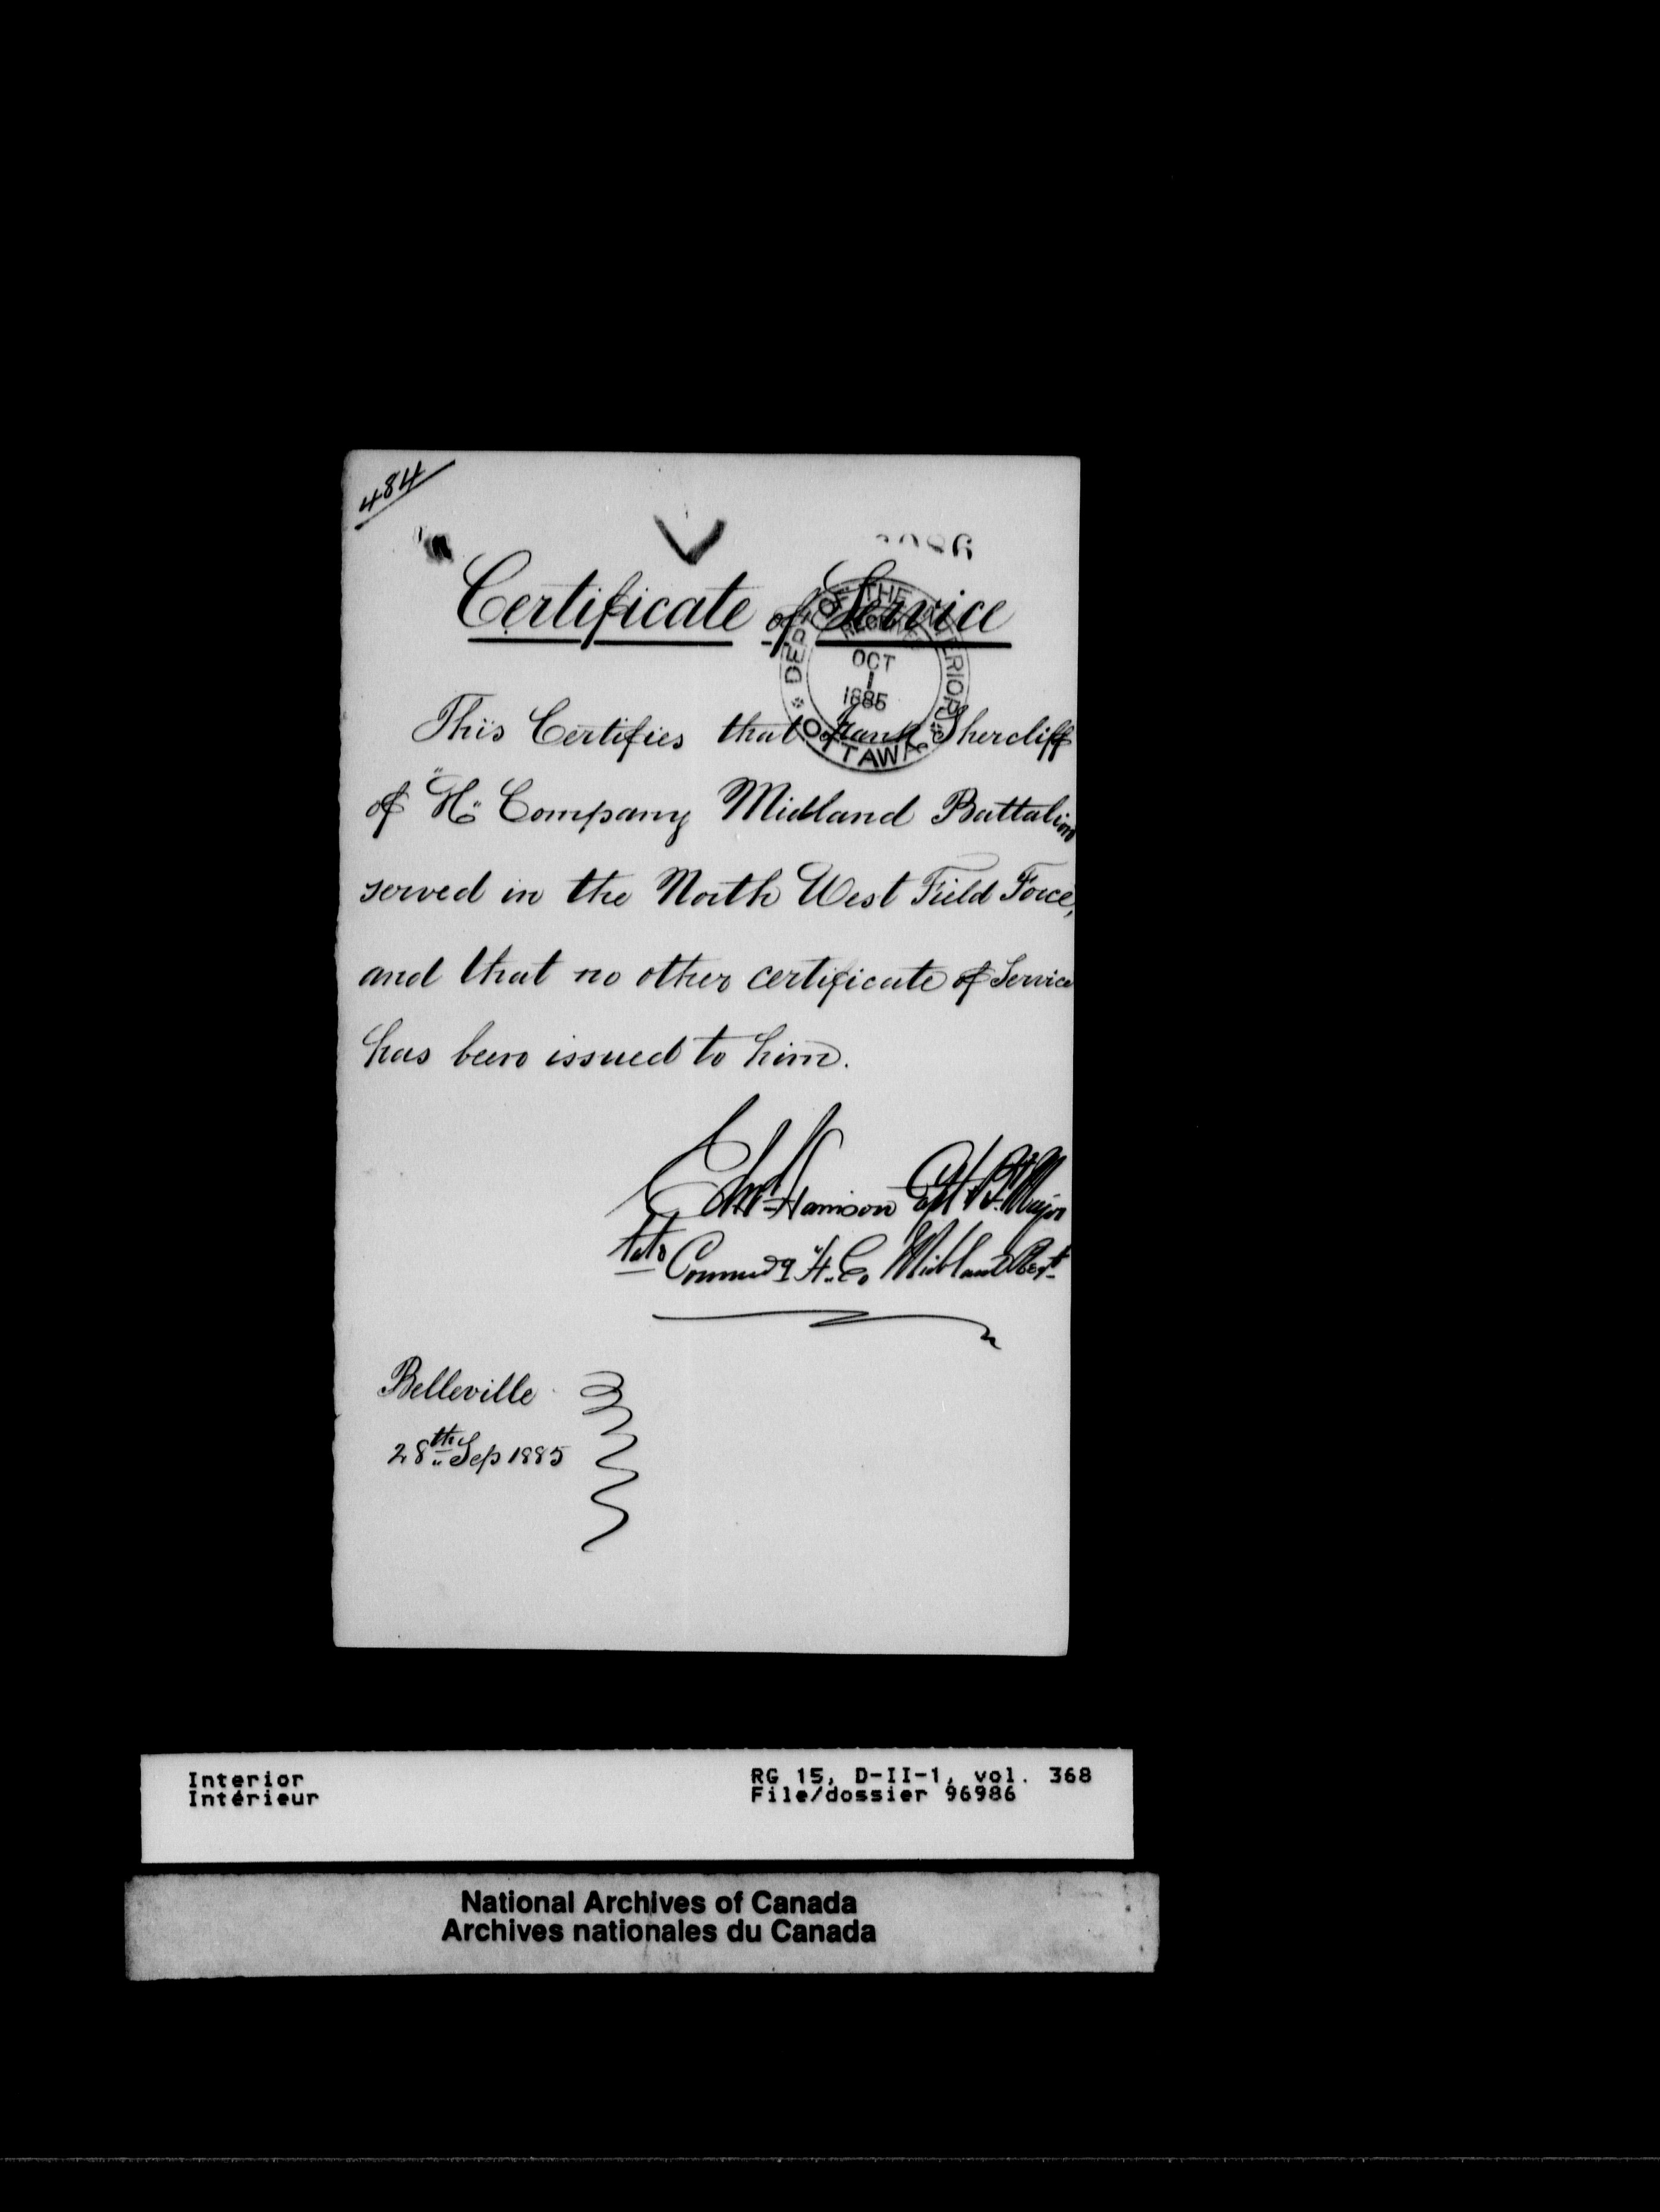 484
Certificate of Service
DEPT. OF THE INTERIOR
RECEIVED
OCT
1
1885
OTTAWA
This Certifies that Frank Shercliff
of "H" Company Midland Battalion
served in the North West Field Force,
and that no other certificate of Service
has been issued to him.
Harrison Capt & Bt. Major
late Commdg H. Co Midland Bat
Belleville
28th Sep 1885
Interior
Intérieur
RG 15, D-II-1, vol. 368
File/dossier 96986
National Archives of Canada
Archives nationales du Canada